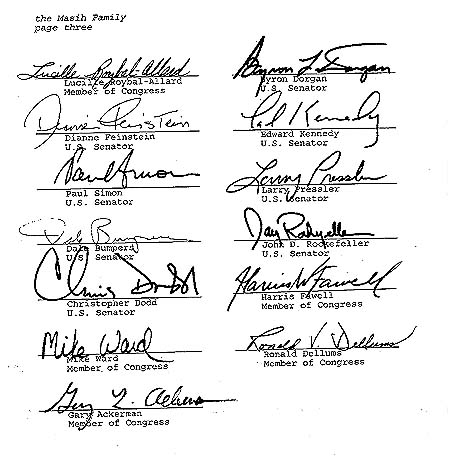 the Masih Family
page three
Lucille Roybal-Allard
Lucille Roybal-Allard
Member of Congress
Byron L. Dorgan
Byron Dorgan
U.S. Senator
Dianne Feinstein
Dianne Feinstein
U.S. Senator
Ted Kennedy
Edward Kennedy
U.S. Senator
Paul Simon
Paul Simon
U.S. Senator
Larry Pressler
Larry Pressler
U.S. Senator
Dale Bumpers
Dale Bumpers
U.S. Senator
Jay Rockefeller
John D. Rockefeller
U.S. Senator
Chris Dodd
Christopher Dodd
U.S. Senator
Harris W. Fawell
Harris Fawell
Member of Congress
Mike Ward
Mike Ward
Member of Congress
Ronald V. Dellums
Ronald Dellums
Member of Congress
Gary L. Ackerman
Gary Ackerman
Member of Congress